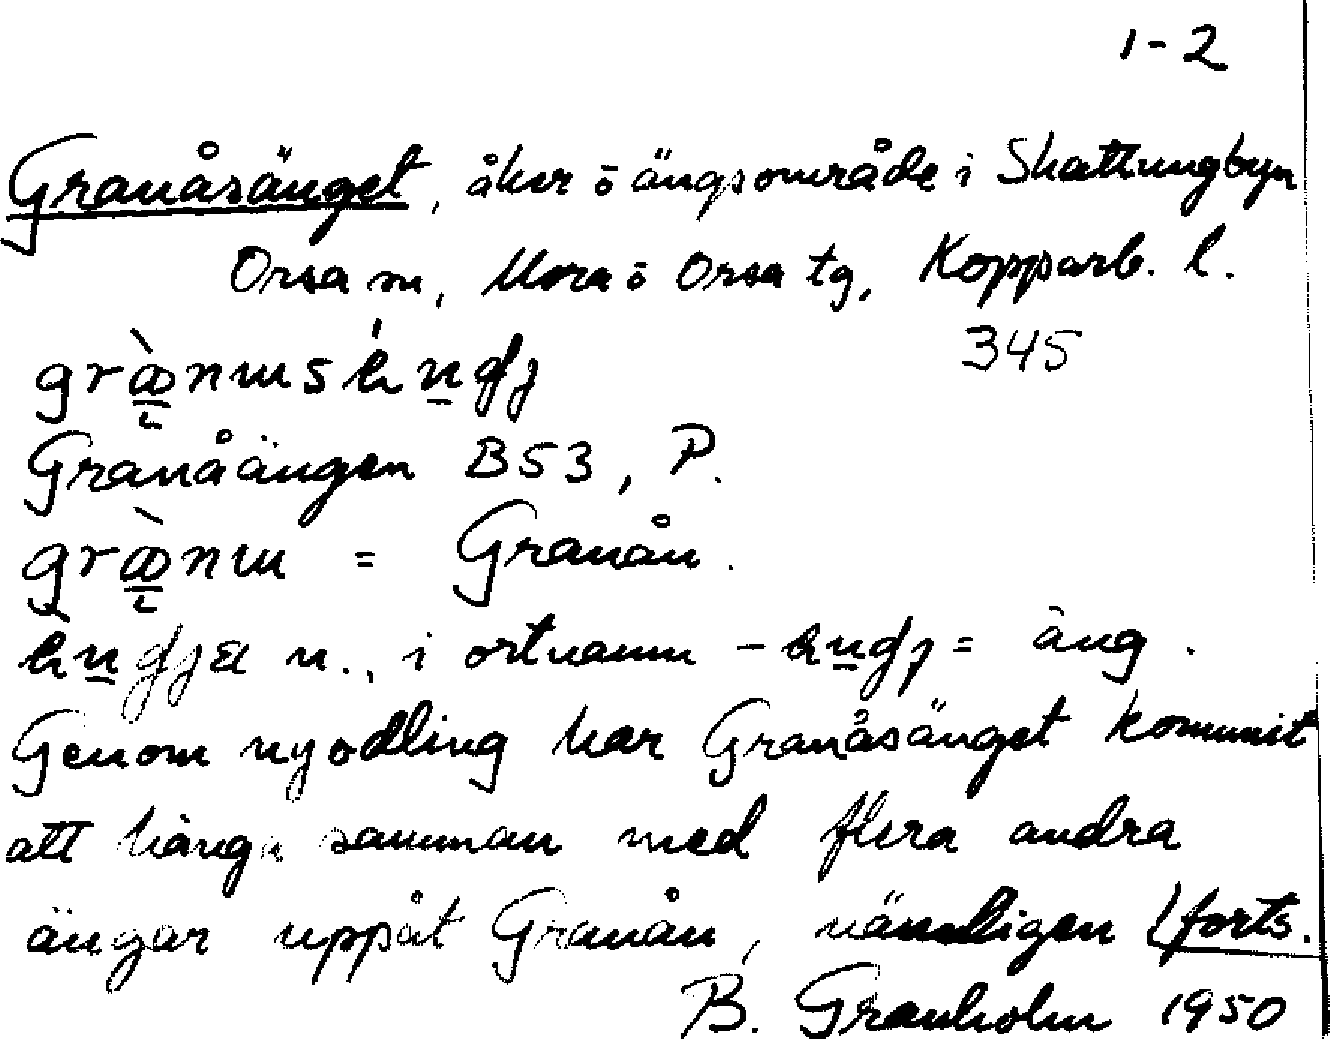 1-2
Granåsänget, åker ō ängsområde i Skattungbyn
Orsa sn, Mora ō Orsa tg, Kopparb. l.
345
Granåängen B53, P.
= Granån.
n., i ortnamn = äng.
Genom nyodling har Granåsänget kommit
att hänga samman med flera andra
ängar uppåt Granån, nämligen forts.
B. Granholm 1950